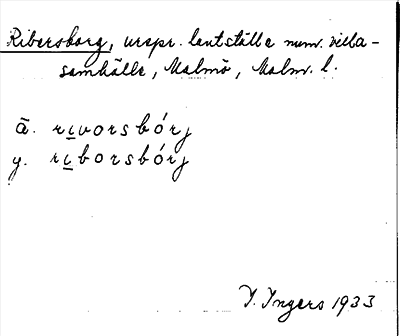 Ribersborg, urspr. lantställe num. villa-
samhälle, Malmö, Malm. l.
ä. rivorsbórj
y. riborsbórj
I. Ingers 1933